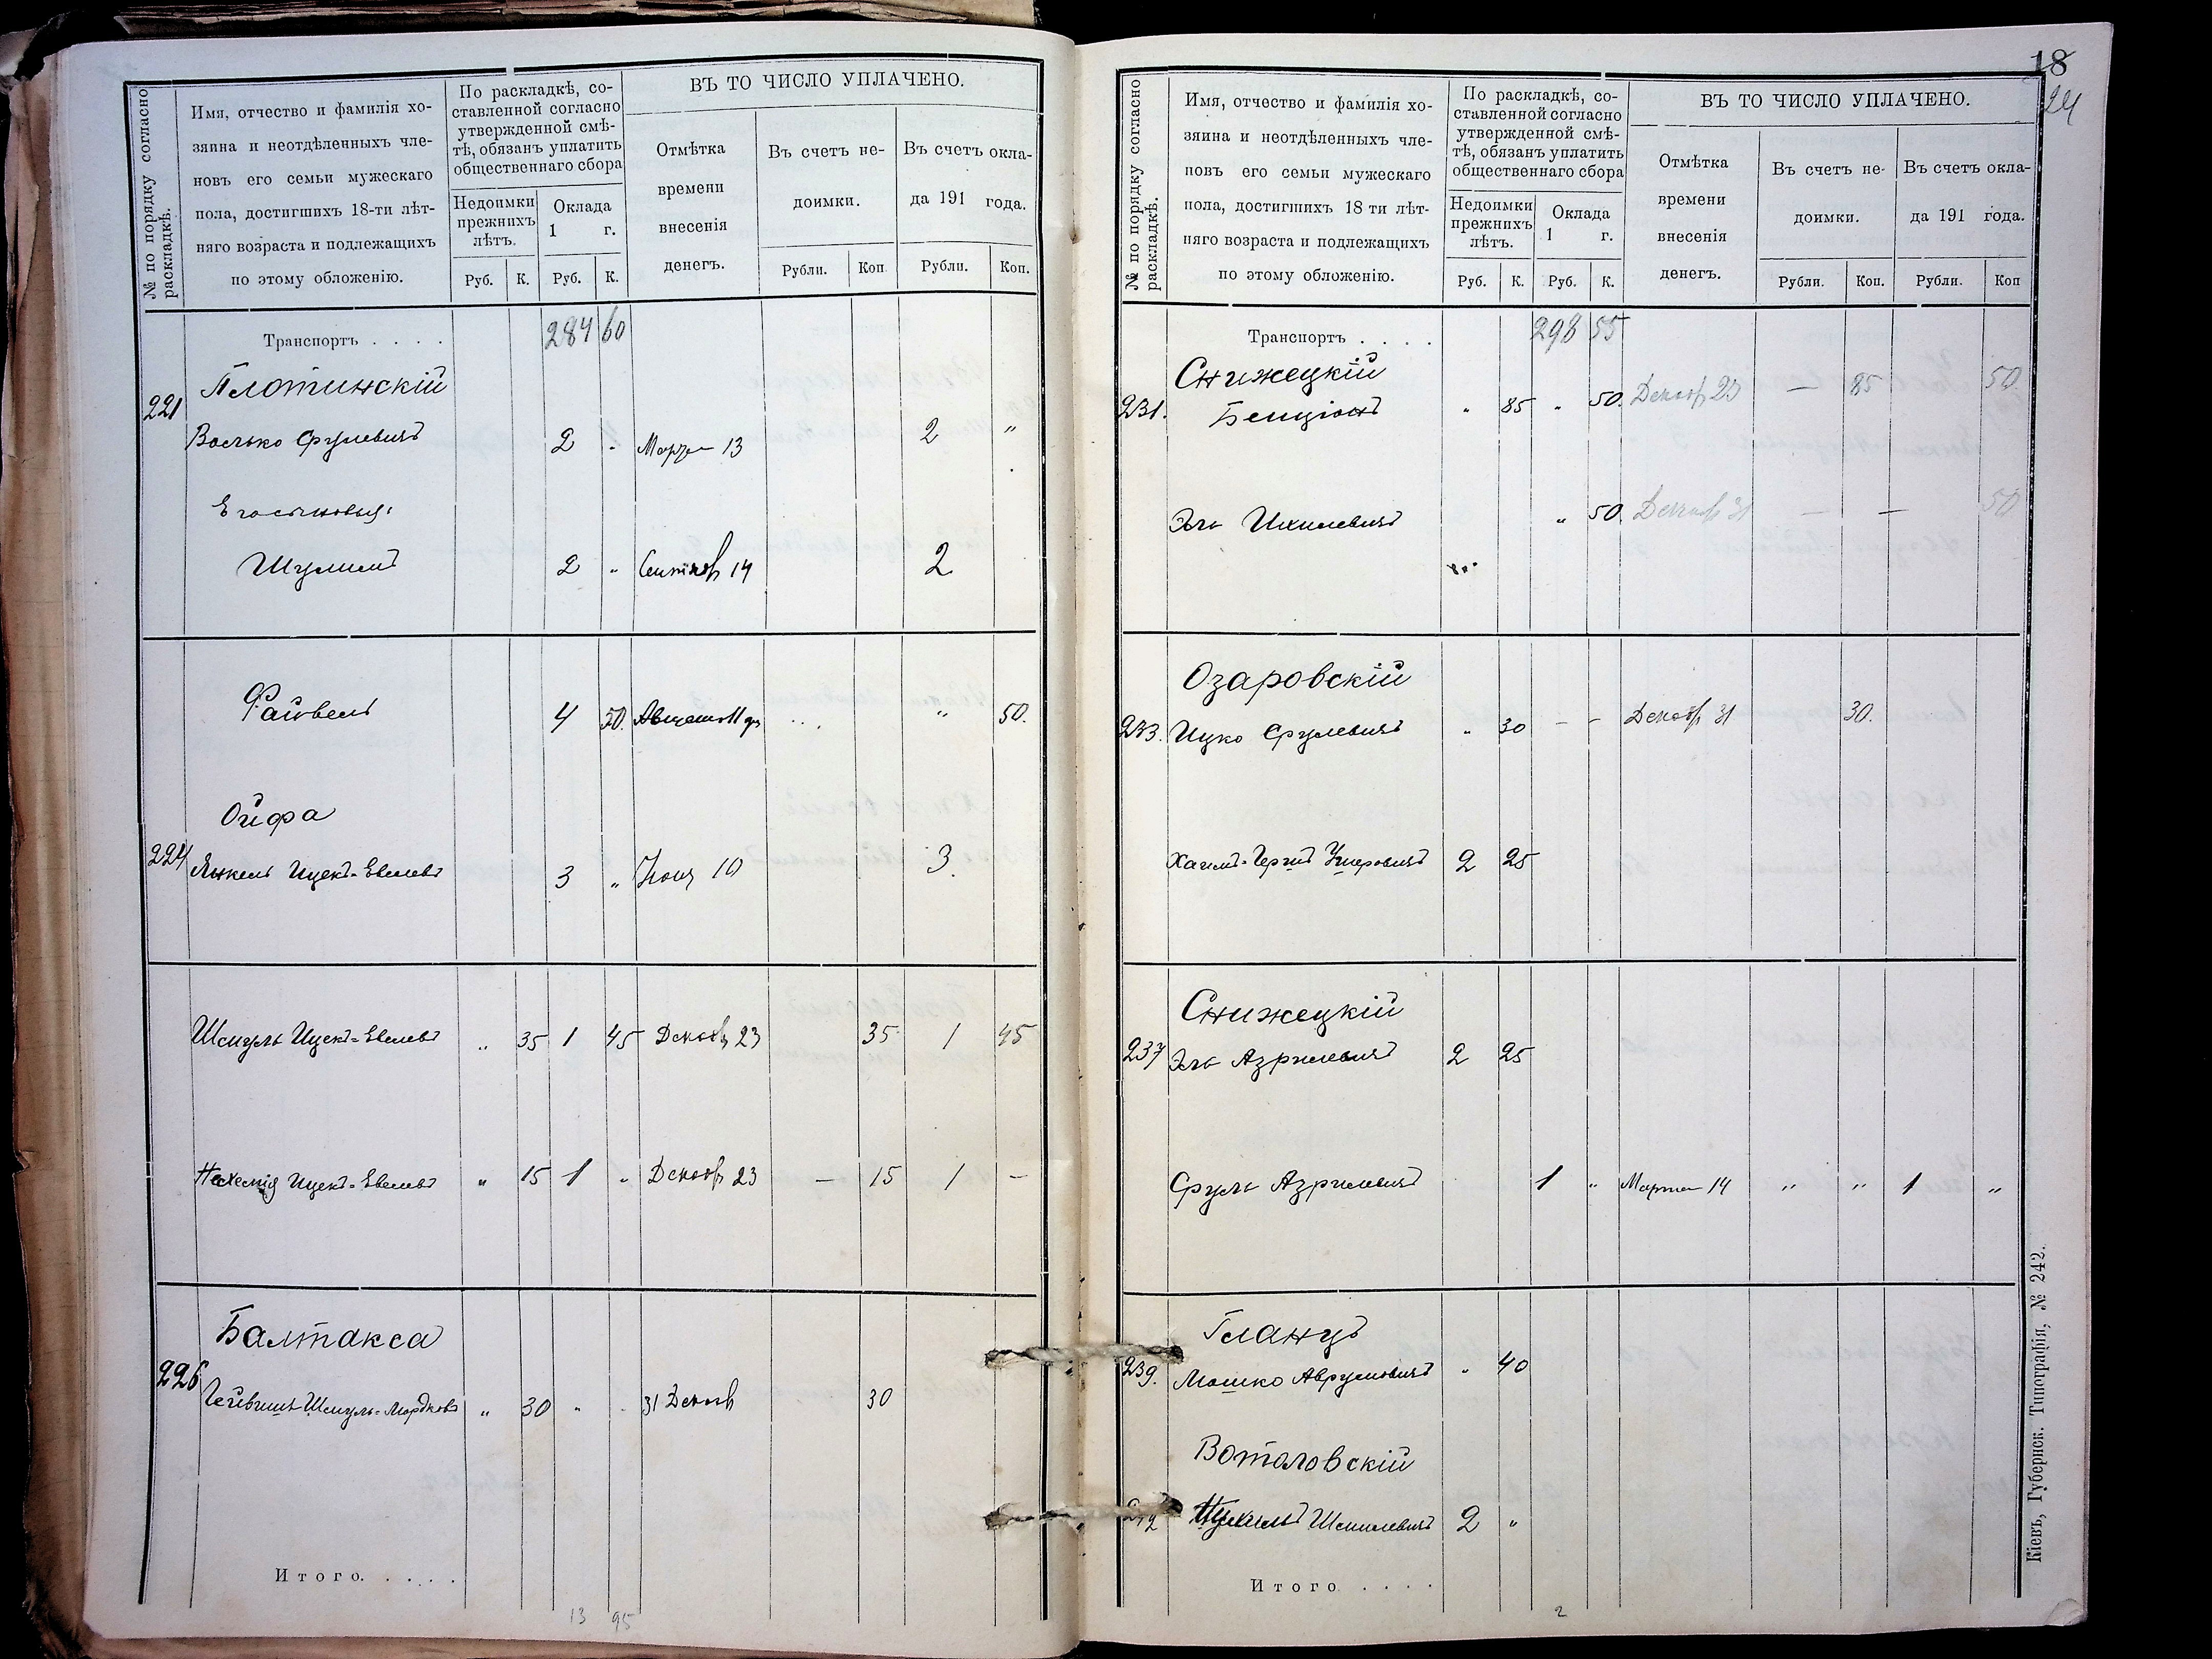 № по порядку согласно раскладкѣ.
Имя, отчество и фамилія хо-
зяина и неотдѣленныхъ чле-
новъ его семьи мужескаго
пола, достигшихъ 18-ти лѣт-
няго возраста и подлежащихъ
по этому обложенію.
По раскладкѣ, со-
ставленной согласно
утвержденной смѣ-
тѣ, обязанъ уплатить
общественнаго сбора
Недоимки
прежнихъ
лѣтъ.
Оклада
1 г.
Руб. К. Руб. К.
ВЪ ТО ЧИСЛО УПЛАЧЕНО.
Отмѣтка
времени
внесенія
денегъ.
Въ счетъ не-
доимки.
Въ счетъ окла-
да 191 года.
Рубли. Коп Рубли. Коп.
Транспортъ . . . . 284 60
Плотинскій
221
Волько Срулевичъ 2 " Марта 13 2 "
Его сыновья:
Шулимъ 2 " Сентябр 14 2
Файвель 4 50. Августа 11 " 50.
Ойфа
224 Янкель Ицекъ-Евелевъ 3 " 10 3.
Шмуль Ицекъ-Евелевъ " 35 1 45 Декабр 23 35 1 45
Нахемія Ицекъ-Евелевъ " 15 1 " Декабр 23 — 15 1 —
Балтакса
226
Шмуль-Мордковъ " 30 " " 31 Декабр 30
Итого. . . . .
13 95
18
24
№ по порядку согласно раскладкѣ.
Имя, отчество и фамилія хо-
зяина и неотдѣленныхъ чле-
повъ его семьи мужескаго
пола, достигшихъ 18 ти лѣт-
няго возраста и подлежащихъ
по этому обложенію.
По раскладкѣ, со-
ставленной согласно
утвержденной смѣ-
тѣ, обязанъ уплатить
общественнаго сбора
Недоимки
прежнихъ
лѣтъ.
Оклада
1 г.
Руб. К. Руб. К.
ВЪ ТО ЧИСЛО УПЛАЧЕНО.
Отмѣтка
времени
внесенія
денегъ.
Въ счетъ не-
доимки.
Въ счетъ окла-
да 191 года.
Рубли. Коп. Рубли. Коп
Транспортъ . . . . 298 55
Снижецкій
231. Бенціонъ " 85 " 50. Декабр 23 — 85 50
Эль Ихилевичъ " 50. Декабр 31 — — 50
Озаровскій
233. Ицко Срулевичъ " 30 — — Декабр 31 30.
Хаимъ-Герша Ушеровичъ 2 25
Снижецкій
237 Эль Азрилевичъ 2 25
Сруль Азрилевичъ 1 " Марта 14 " " 1 "
Гланцъ
239. Мошко Аврумовичъ " 40
Воталовскій
Шмилевичъ 2 "
Итого . . . .
2
Кіевъ, Губернск. Типографія, № 242.